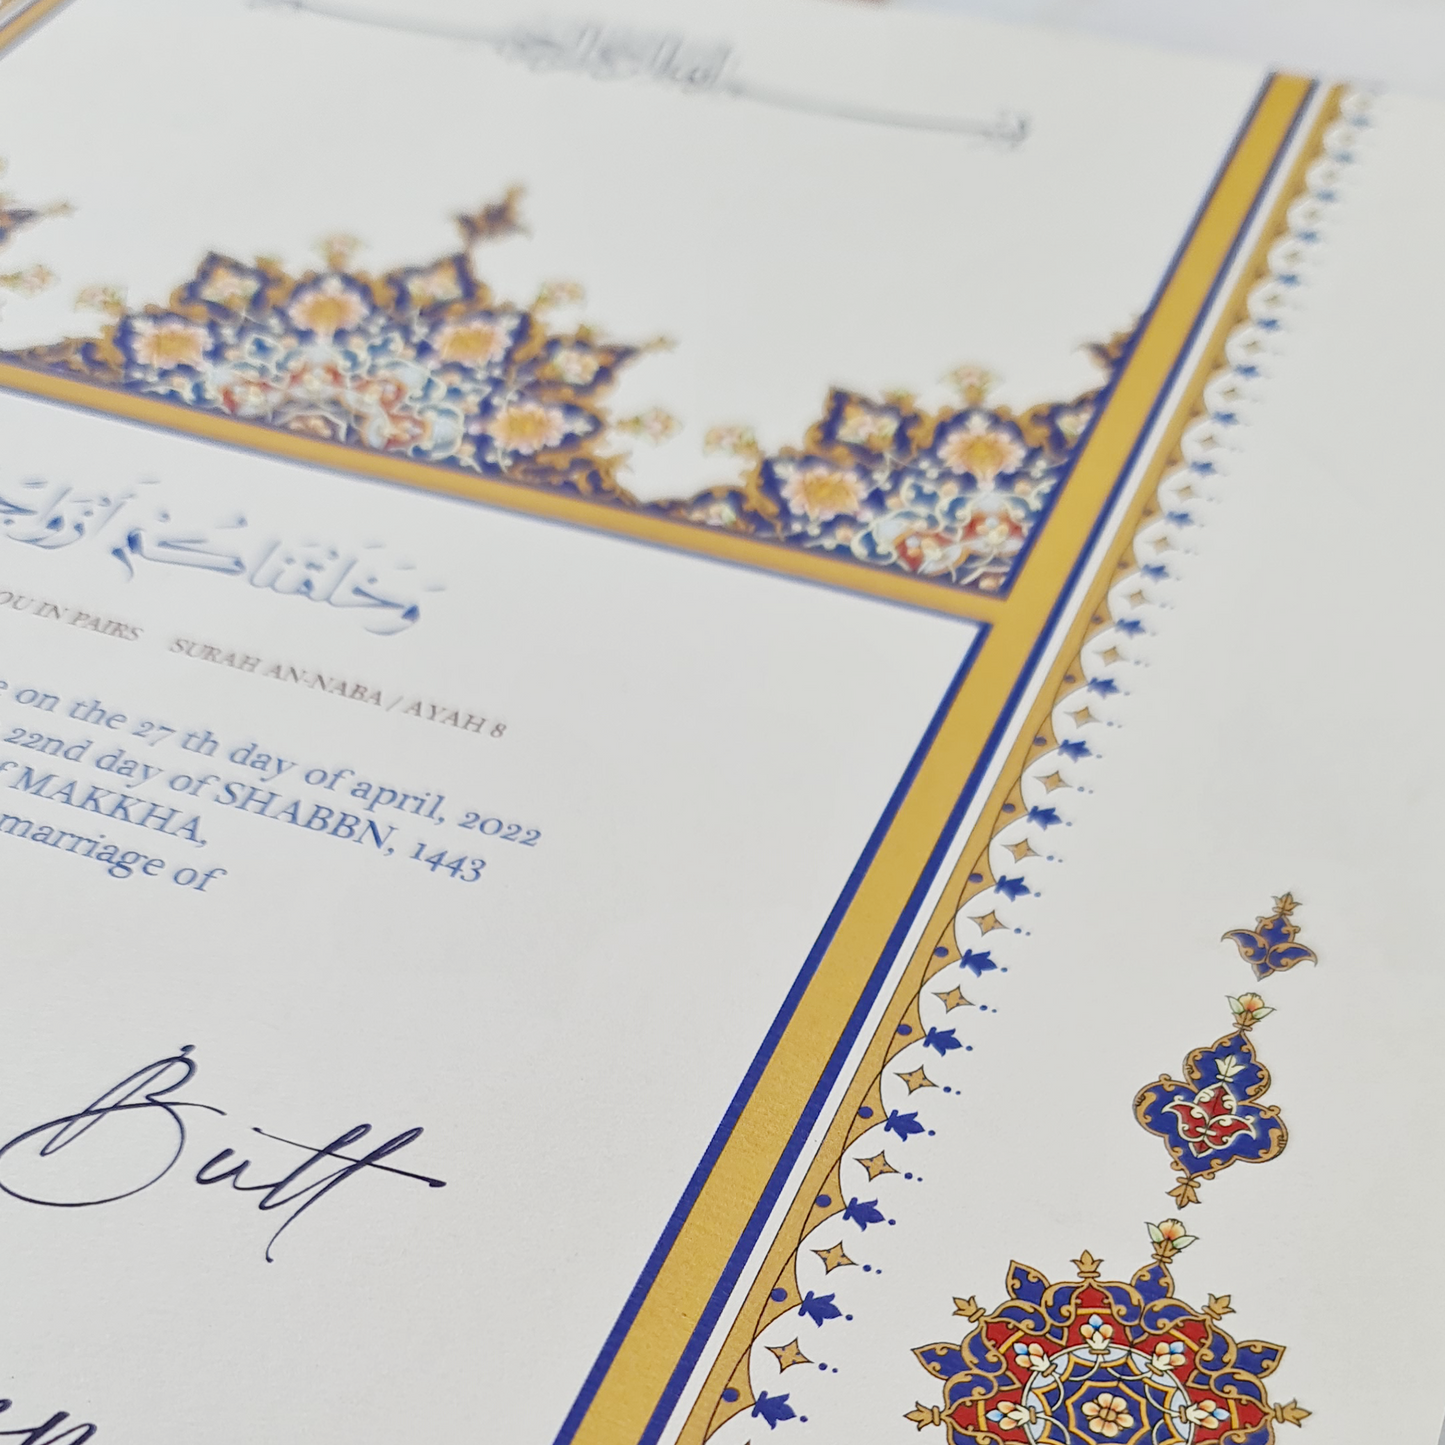 وَخَلَقْنَاكُمْ
OU IN PAIRS SURAH AN-NABA / AYAH 8
e on the 27 th day of april, 2022
22nd day of SHABBN, 1443
f MAKKHA,
marriage of
Butt